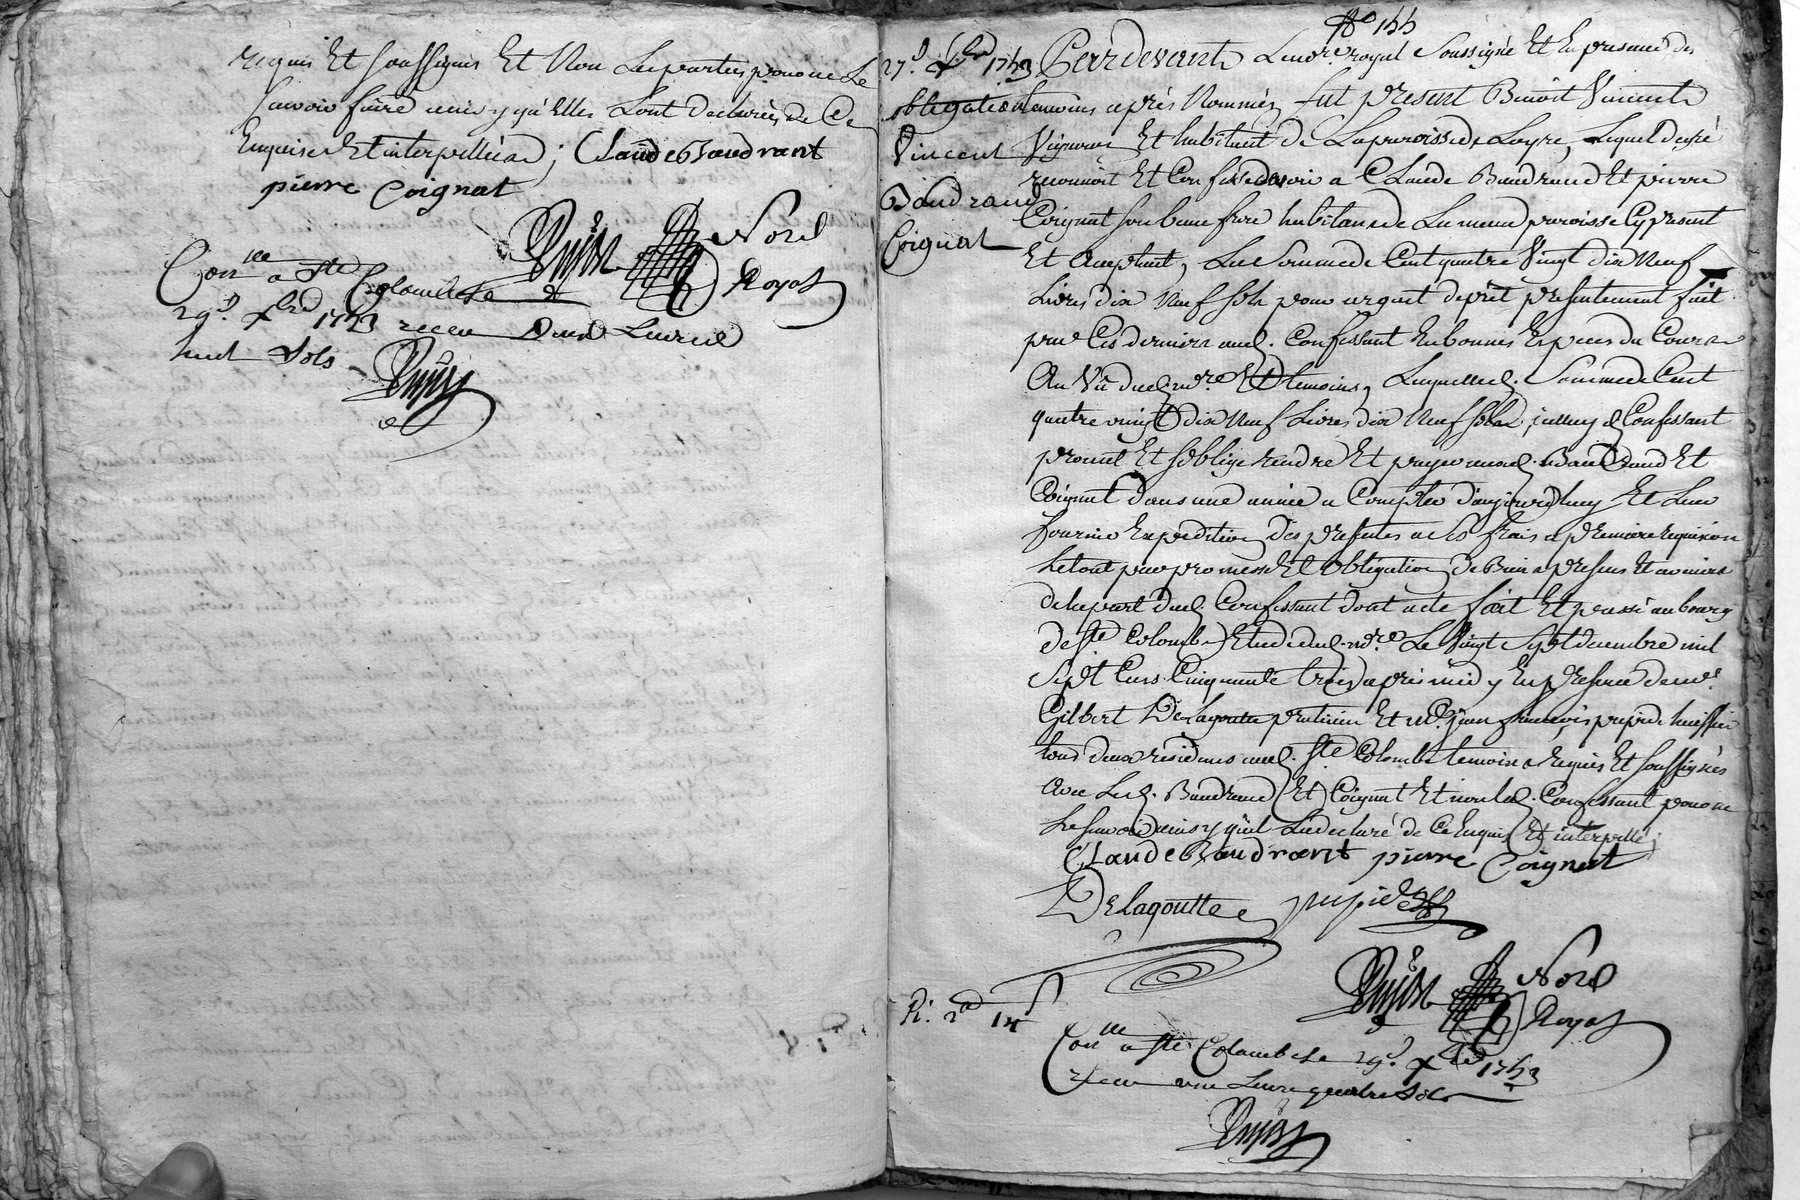 requis Et soussignés Et Non Les parties pour ne Le
savoir faire ainsy qu'Elles Lont declarées de Ce
Enquises Et interpellées; Claude Baudrant
pierre Coignat
Nore
Royal
Con.lle a Ste Colombe Le
29.e xbre 1753 receu Douze Livres
huit Sols
No 155
27.e xbre 1753
obligation
Vincent
Baudrand
Coignat
Pardevant Le nore royal Soussigné Et En presence des
temoins après Nommés fut present Benoit Vincent
Vigneron Et habitant de La paroisse de Layre, Lequel de gré
reconnoit Et Confesse devoir a Claude Baudrand Et pierre
Coignat son beau frere habitans de La meme paroisse Cy present
Et Acceptant, La Somme de Cent quatre Vingt dix Neuf
Livres dix Neuf sols pour argent de prêt presentement fait
par Ces derniers aud. Confessant En bonnes Especes du Cours
Au Vû dud. nre Et temoins, Laquelle d. Somme de Cent
quatre vingt dix Neuf Livres dix Neuf sols, icelluy d. Confessant
promet Et s'oblige rendre Et payer auxd. Baudrand Et
Coignat dans une année a Compter d'aujourdhuy Et Leur
fournir Expedition des presentes a Ses frais a premiere requisition
Le tout par promesse Et obligation de Biens presens Et avenirs
de La part dud. Confessant dont acte fait Et passé au bourg
de Ste Colombe Etude dud. nre Le Vingt Sept decembre mil
Sept Cens Cinquante trois après midy En presence de me
Gilbert Delagoutte praticien Et me jean francois pupier huissier
tous deux residens aud. Ste Colombe temoins requis Et soussignés
Avec Lesd. Baudrand Et Coignat Et non Led. Confessant pour ne
Le savoir ainsy qu'il La declaré de Ce Enquis Et interpellé;
Claude Baudrant pierre Coignat
Delagoutte pupier
Nore
Royal
R. 2d 14 s
Con.lle a Ste Colombe Le 29.e xbre 1753
receu une Livre quatre Sols